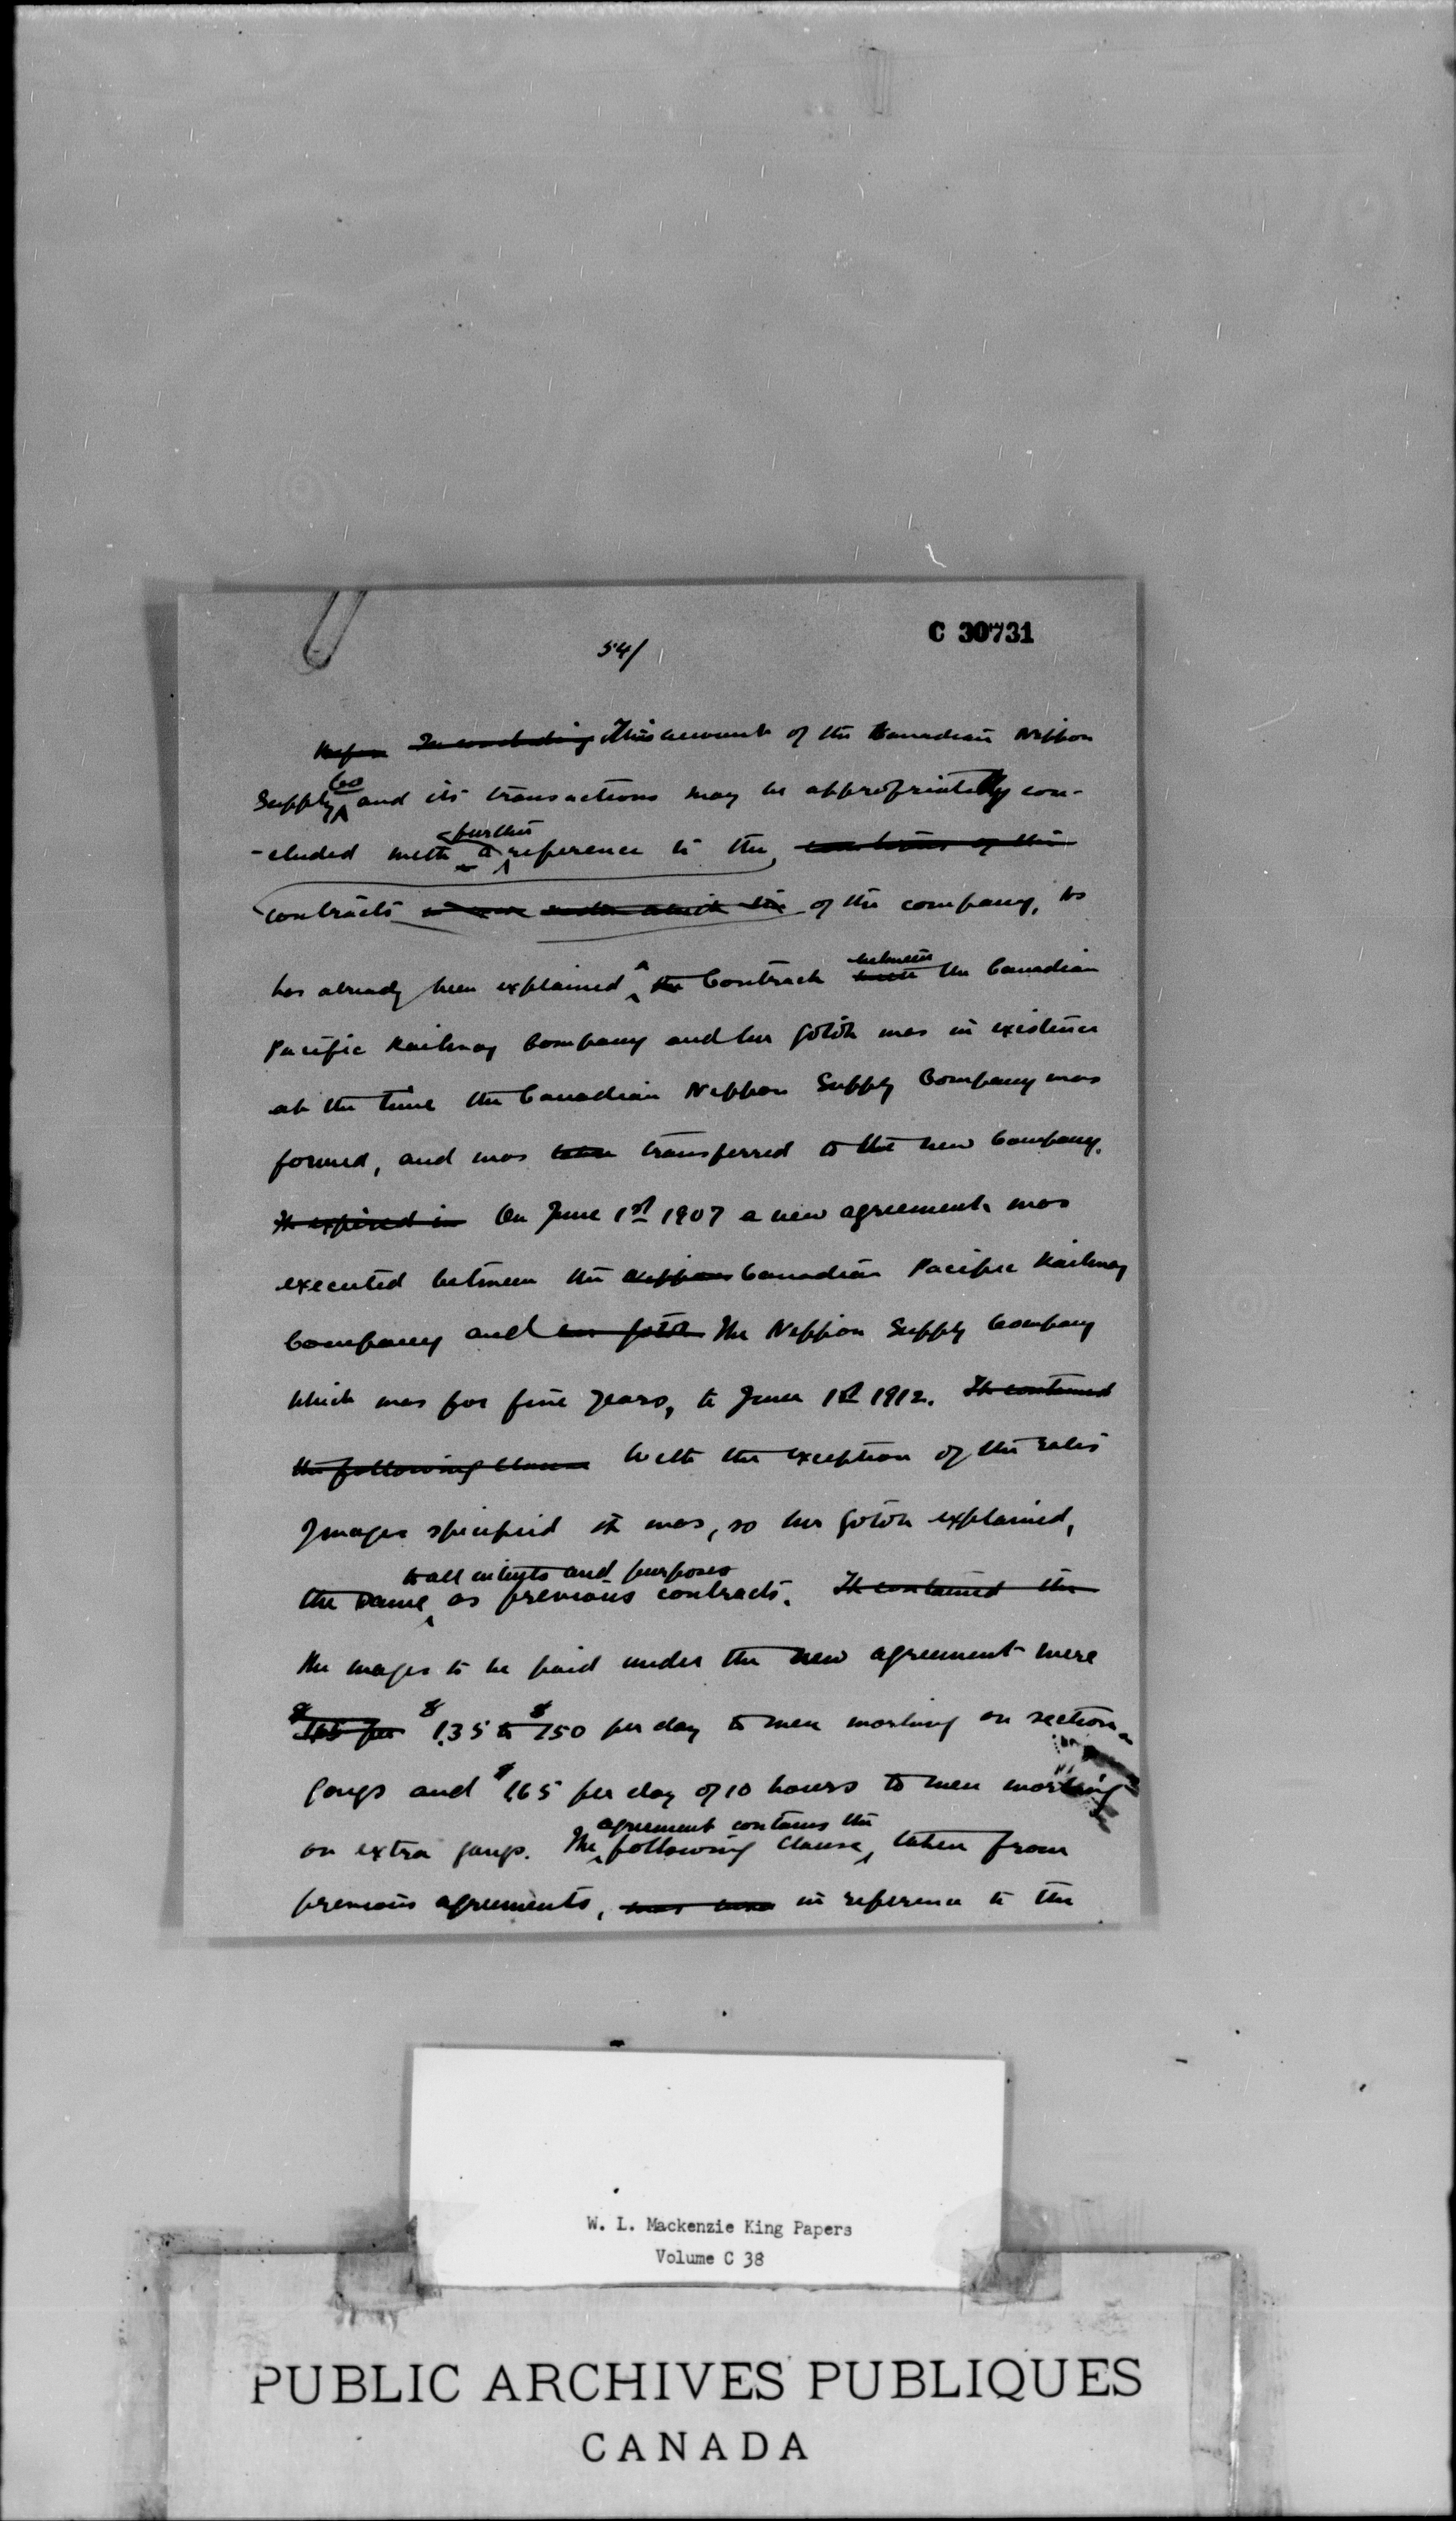 C 30731
54/
Before In concluding This account of the Canadian Nippon
Supply Co and its transactions may be appropriately con-
-cluded with a further reference to the
contracts of the company. As
has already been explained a the Contract between with the Canadian
Pacific Railway Company and Mr Gotoh was in existence
at the time the Canadian Nippon Supply Company was
formed, and was taken transferred to the new Company.
It expired in On June 1st 1907 a new agreement was
executed between the Nippon Canadian Pacific Railway
Company and Mr Gotoh The Nippon Supply Company
which was for five years, to June 1st 1912. It contained
the following clause With the exception of the rates
of wages specified it was, so Mr Gotoh explained,
the same to all intents and purposes as previous contracts. It contained the
The wages to be paid under the new agreement were
$1.65 per $1.35 to $1.50 per day to men working on section
gangs and $1.65 per day of 10 hours to men working
on extra gangs. The agreement contains the following clause, taken from
previous agreements, in reference to the
W. L. Mackenzie King Papers
Volume C 38
PUBLIC ARCHIVES PUBLIQUES
CANADA